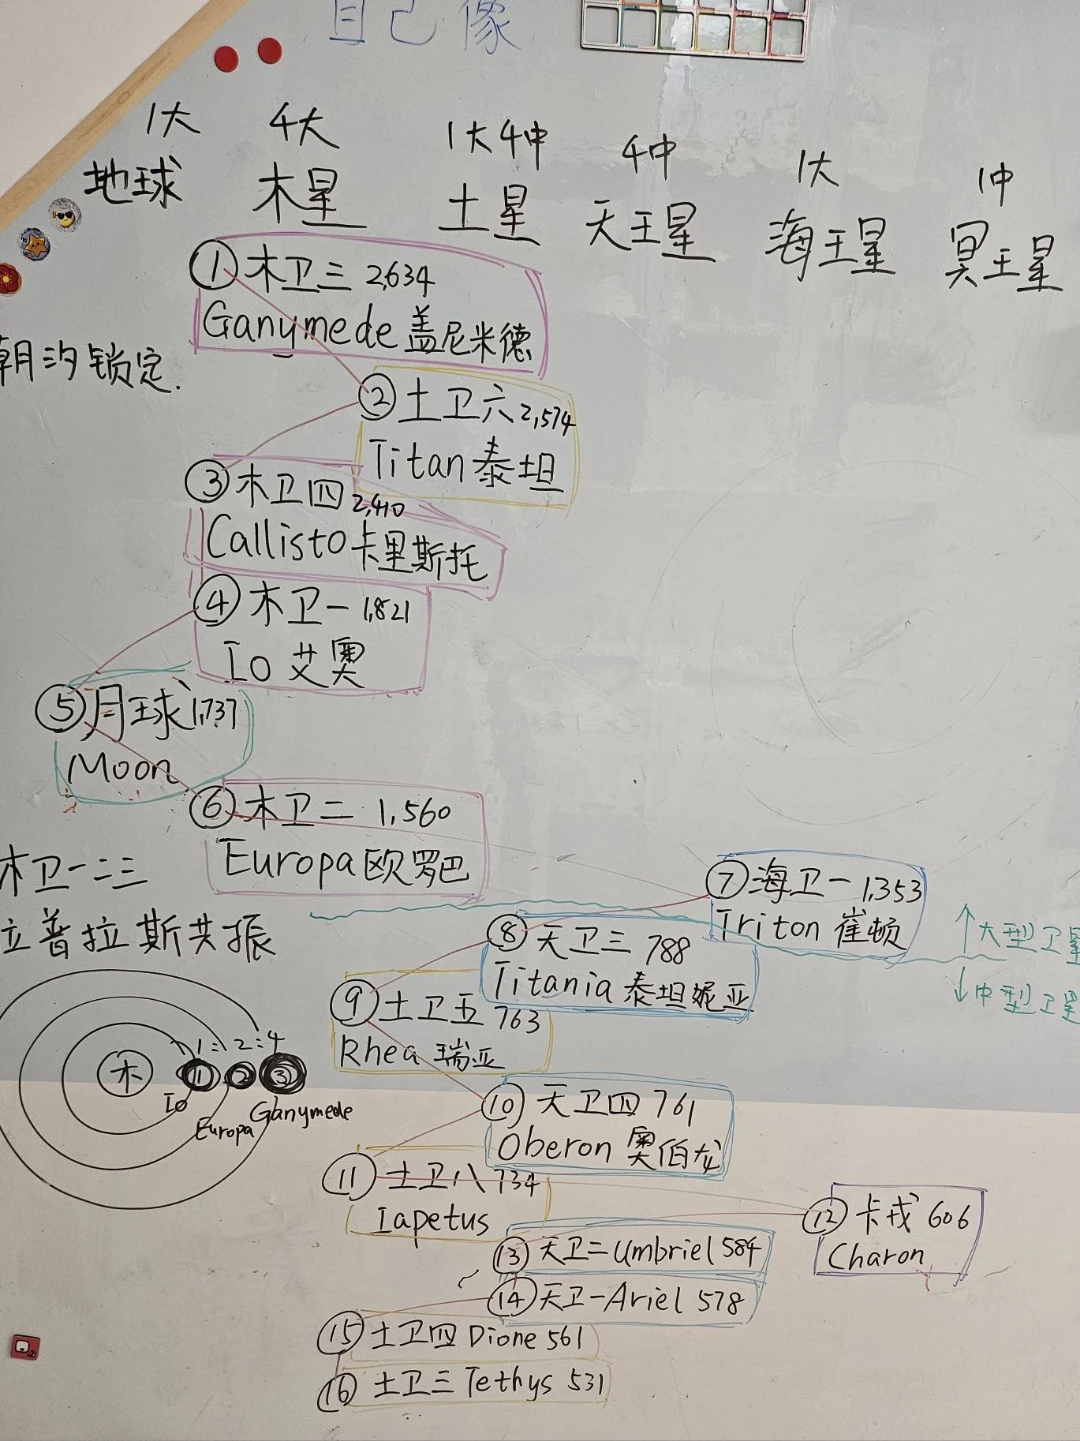 自己像
1大 4大 1大4中 4中 1大 1中
地球 木星 土星 天王星 海王星 冥王星
① 木卫三 2,634
Ganymede 盖尼米德
潮汐锁定.
② 土卫六 2,574
Titan 泰坦
③ 木卫四 2,410
Callisto 卡里斯托
④ 木卫一 1,821
Io 艾奥
⑤ 月球 1,737
Moon
⑥ 木卫二 1,560
Europa 欧罗巴
⑦ 海卫一 1,353
Triton 崔顿
↑大型卫星
↓中型卫星
⑧ 天卫三 788
Titania 泰坦妮亚
⑨ 土卫五 763
Rhea 瑞亚
⑩ 天卫四 761
Oberon 奥伯龙
⑪ 土卫八 734
Iapetus
⑫ 卡戎 606
Charon
⑬ 天卫二 Umbriel 584
⑭ 天卫一 Ariel 578
⑮ 土卫四 Dione 561
⑯ 土卫三 Tethys 531
木卫一二三
拉普拉斯共振
1:2:4
木 1 2 3
Io
Europa
Ganymede